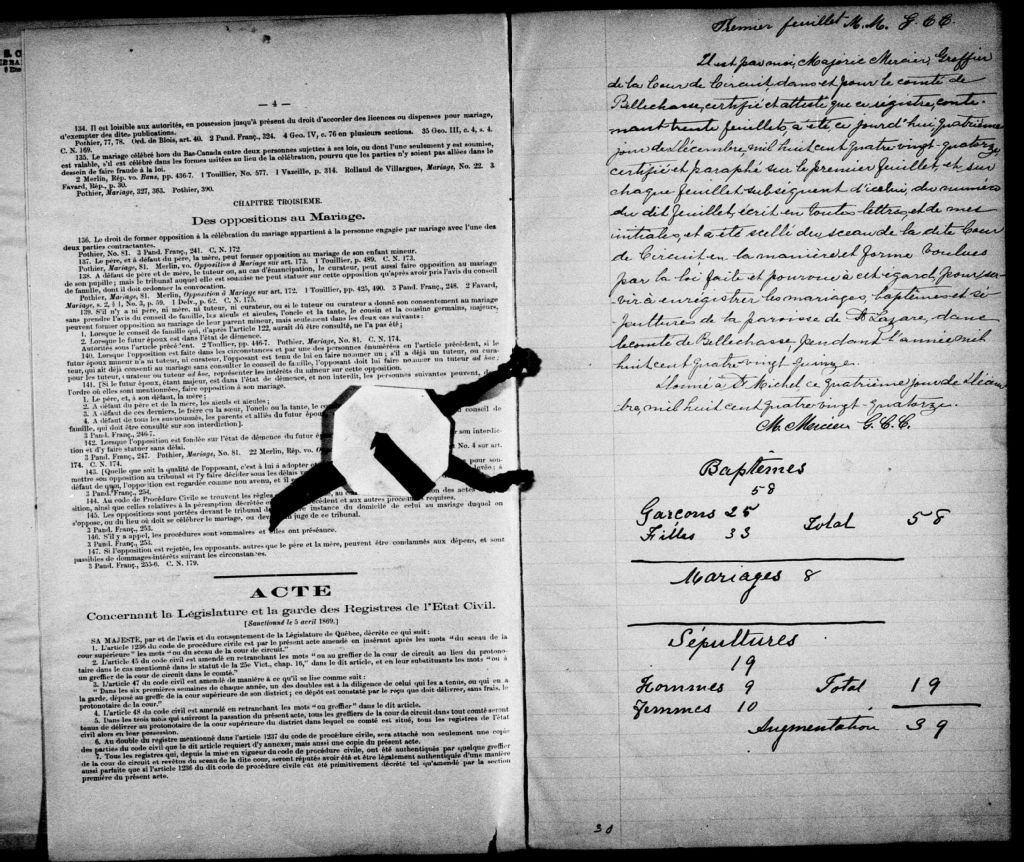 S. C
— 4 —
134. Il est loisible aux autorités, en possession jusqu'à présent du droit d'accorder des licences ou dispenses pour mariage,
d'exempter des dites publications.
Pothier, 77, 78. Ord. de Blois, art. 40. 2 Pand. Franç., 324. 4 Geo. IV, c. 76 en plusieurs sections. 35 Geo. III, c. 4, s. 4.
C. N. 169.
135. Le mariage célébré hors du Bas-Canada entre deux personnes sujettes à ses lois, ou dont l'une seulement y est soumise,
est valable, s'il est célébré dans les formes usitées au lieu de la célébration, pourvu que les parties n'y soient pas allées dans le
dessein de faire fraude à la loi.
2 Merlin, Rép. vo. Bans, pp. 436-7. 1 Touillier, No. 577. 1 Vazeille, p. 314. Rolland de Villargues, Mariage, No. 22. 3
Favard, Rép., p. 30.
Pothier, Mariage, 327, 363. Pothier, 390.
CHAPITRE TROISIEME.
Des oppositions au Mariage.
136. Le droit de former opposition à la célébration du mariage appartient à la personne engagée par mariage avec l'une des
deux parties contractantes.
Pothier, No. 81. 3 Pand. Franç., 241. C. N. 172.
137. Le père, et à défaut du père, la mère, peut former opposition au mariage de son enfant mineur.
Pothier, Mariage, 81. Merlin, vo. Opposition à Mariage sur art. 173. 1 Touillier, p. 489. C. N. 173.
138. A défaut de père et de mère, le tuteur, ou, au cas d'émancipation, le curateur, peut aussi faire opposition au mariage
de son pupille; mais le tribunal auquel elle est soumise ne peut statuer sur cette opposition qu'après avoir pris l'avis du conseil
de famille, dont il doit ordonner la convocation.
Pothier, Mariage, 81. Merlin, Opposition à Mariage sur art. 172. 1 Touillier, pp. 425, 490. 3 Pand. Franç., 248. 2 Favard,
Mariage, s. 2, § 1, No. 3, p. 59. 1 Delv., p. 62. C. N. 175.
139. S'il n'y a ni père, ni mère, ni tuteur, ni curateur, ou si le tuteur ou curateur a donné son consentement au mariage
sans prendre l'avis du conseil de famille, les aïeuls et aïeules, l'oncle et la tante, le cousin et la cousine germains, majeurs,
peuvent former opposition au mariage de leur parent mineur, mais seulement dans les deux cas suivants:
1. Lorsque le conseil de famille qui, d'après l'article 122, aurait dû être consulté, ne l'a pas été;
2. Lorsque le futur époux est dans l'état de démence.
Autorités sous l'article précédent. 2 Touillier, pp. 446-7. Pothier, Mariage, No. 81. C. N. 174.
140. Lorsque l'opposition est faite dans les circonstances et par une des personnes énumérées en l'article précédent, si le
futur époux mineur n'a ni tuteur, ni curateur, l'opposant est tenu de lui en faire nommer un; s'il a déjà un tuteur, ou cura-
teur, qui ait déjà consenti au mariage sans consulter le conseil de famille, l'opposant doit lui faire nommer un tuteur ad hoc,
pour les tuteur, curateur ou tuteur ad hoc, représenter les intérêts du mineur sur cette opposition.
141. [Si le futur époux, étant majeur, est dans l'état de démence, et non interdit, les personnes suivantes peuvent, d
l'ordre où elles sont mentionnées, faire opposition à son mariage.
1. Le père, et, à son défaut, la mère;
2. A défaut du père et de la mère, les aïeuls et aïeules;
3. A défaut de ces derniers, le frère ou la sœur, l'oncle ou la tante, le co
4. A défaut de tous les sus-nommés, les parents et alliés du futur époux conseil de
famille, qui doit être consulté sur son interdiction].
3 Pand. Franç., 246-7.
142. Lorsque l'opposition est fondée sur l'état de démence du futur ép son interdic-
tion et d'y faire statuer sans délai.
3 Pand. Franç., 247. Pothier, Mariage, No. 81. 22 Merlin, Rép. vo. O No. 4 sur art.
174. C. N. 174.
143. [Quelle que soit la qualité de l'opposant, c'est à lui à adopter et
mettre son opposition au tribunal et l'y faire décider sous les délais
défaut de quoi, l'opposition est regardée comme non avenu, et il
3 Pand. Franç., 254.
144. Au code de Procédure Civile se trouvent les règles
sition, ainsi que celles relatives à la péremption décrétée précédent et aux autres procédures requises.
145. Les oppositions sont portées devant le tribunal de instance du domicile de celui au mariage duquel on
s'oppose, ou du lieu où doit se célébrer le mariage, ou devant juge de ce tribunal.
3 Pand. Franç., 253.
146. S'il y a appel, les procédures sont sommaires et elles ont préséance.
3 Pand. Franç., 253.
147. Si l'opposition est rejetée, les opposants, autres que le père et la mère, peuvent être condamnés aux dépens, et sont
passibles de dommages-intérêts suivant les circonstances.
3 Pand. Franç., 255-6. C. N. 179.
ACTE
Concernant la Législature et la garde des Registres de l'Etat Civil.
[Sanctionné le 5 avril 1869.]
SA MAJESTE, par et de l'avis et du consentement de la Législature de Québec, décrète ce qui suit:
1. L'article 1236 du code de procédure civile est par le présent acte amendé en insérant après les mots "du sceau de la
cour supérieure" les mots "ou du sceau de la cour de circuit."
2. L'article 45 du code civil est amendé en retranchant les mots "ou au greffier de la cour de circuit au lieu du protono-
taire dans le cas mentionné dans le statut de la 25e Vict., chap. 16," dans le dit article, et en leur substituants les mots "ou à
un greffier de la cour de circuit dans le comté."
3. L'article 47 du code civil est amendé de manière à ce qu'il se lise comme suit:
"Dans les six premières semaines de chaque année, un des doubles est à la diligence de celui qui les a tenus, ou qui en a
la garde, déposé au greffe de la cour supérieure de son district; ce dépôt est constaté par le reçu que doit délivrer, sans frais, le
protonotaire de la cour."
4. L'article 48 du code civil est amendé en retranchant les mots "ou greffier" dans le dit article.
5. Dans les trois mois qui suivront la passation du présent acte, tous les greffiers de la cour de circuit dans tout comté seront
tenus de délivrer au protonotaire de la cour supérieure du district dans lequel ce comté est situé, tous les registres de l'état
civil alors en leur possession.
6. Au double du registre mentionné dans l'article 1237 du code de procédure civile, sera attaché non seulement une copie
des parties du code civil que le dit article requiert d'y annexer, mais aussi une copie du présent acte.
7. Tous les registres qui, depuis la mise en vigueur du code de procédure civile, ont été authentiqués par quelque greffier
de la cour de circuit et revêtus du sceau de la dite cour, seront réputés avoir été et être légalement authentiqués d'une manière
aussi parfaite que si l'article 1236 du dit code de procédure civile eût été primitivement décrété tel qu'amendé par la section
première du présent acte.
Premier feuillet M. M. G. C. C.
Il est par moi, Majorie Mercier, Greffier
de la Cour de Circuit, dans et pour le comté de
Bellechasse, certifié et attesté que ce registre, conte-
nant trente feuillets, a été ce jourd'hui, quatrième
jour de Décembre, mil huit cent quatre vingt-quatorze,
certifié et paraphé sur le premier feuillet, et sur
chaque feuillet subséquent d'icelui, du numéro
du dit feuillet, écrit en toutes lettres, et de mes
initiales, et a été scellé du sceau de la dite Cour
de Circuit en la manière et forme voulues
par la loi faite et pourvue à cet égard, pour ser-
vir à enregistrer les mariages, baptêmes et sé-
pultures de la paroisse de St Lazare, dans
le comté de Bellechasse, pendant l'année mil
huit cent quatre vingt quinze.
Donné à St Michel ce quatrième jour de Décem-
bre, mil huit cent quatre vingt-quatorze.
M. Mercier G. C. C.
Baptêmes
58
Garcons 25 Total 58
Filles 33
Mariages 8
Sépultures
19
Hommes 9 Total 19
Femmes 10
Augmentation 39
30